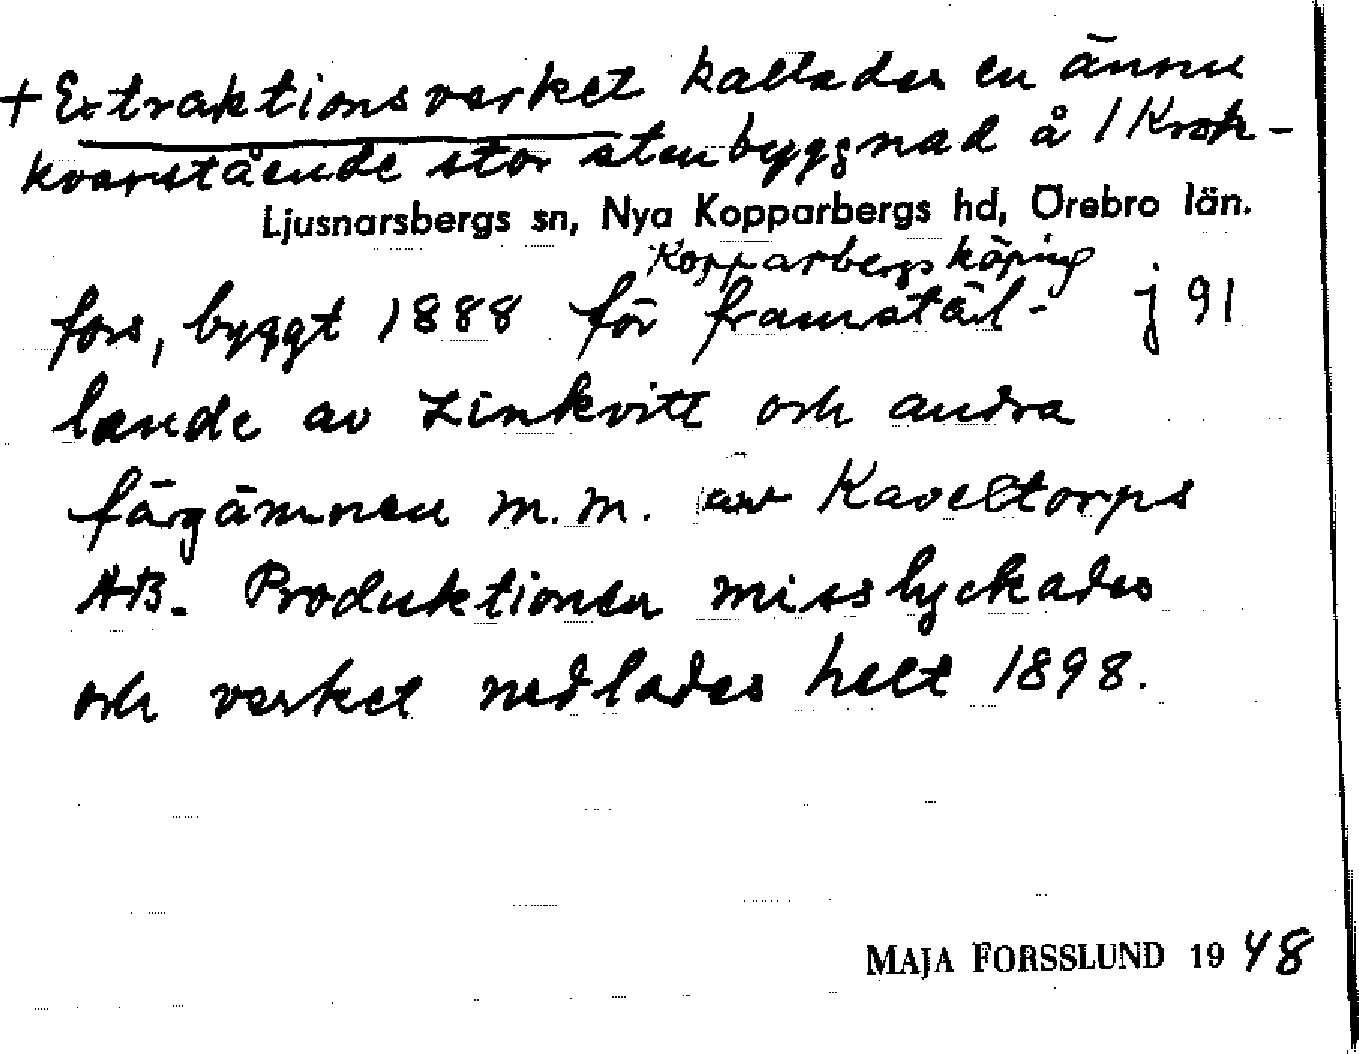 + Extraktionsverket kallades en ännu
kvarstående stor stenbyggnad å / Krok-
Ljusnarsbergs sn, Nya Kopparbergs hd, Örebro län.
Kopparbergs köping
fors, byggt 1888 för framstäl- j 91
lande av Zinkvitt och andra
färgämnen m.m. av Kaveltorps
AB. Produktionen misslyckades
och verket nedlades helt 1898.
MAJA FORSSLUND 1948